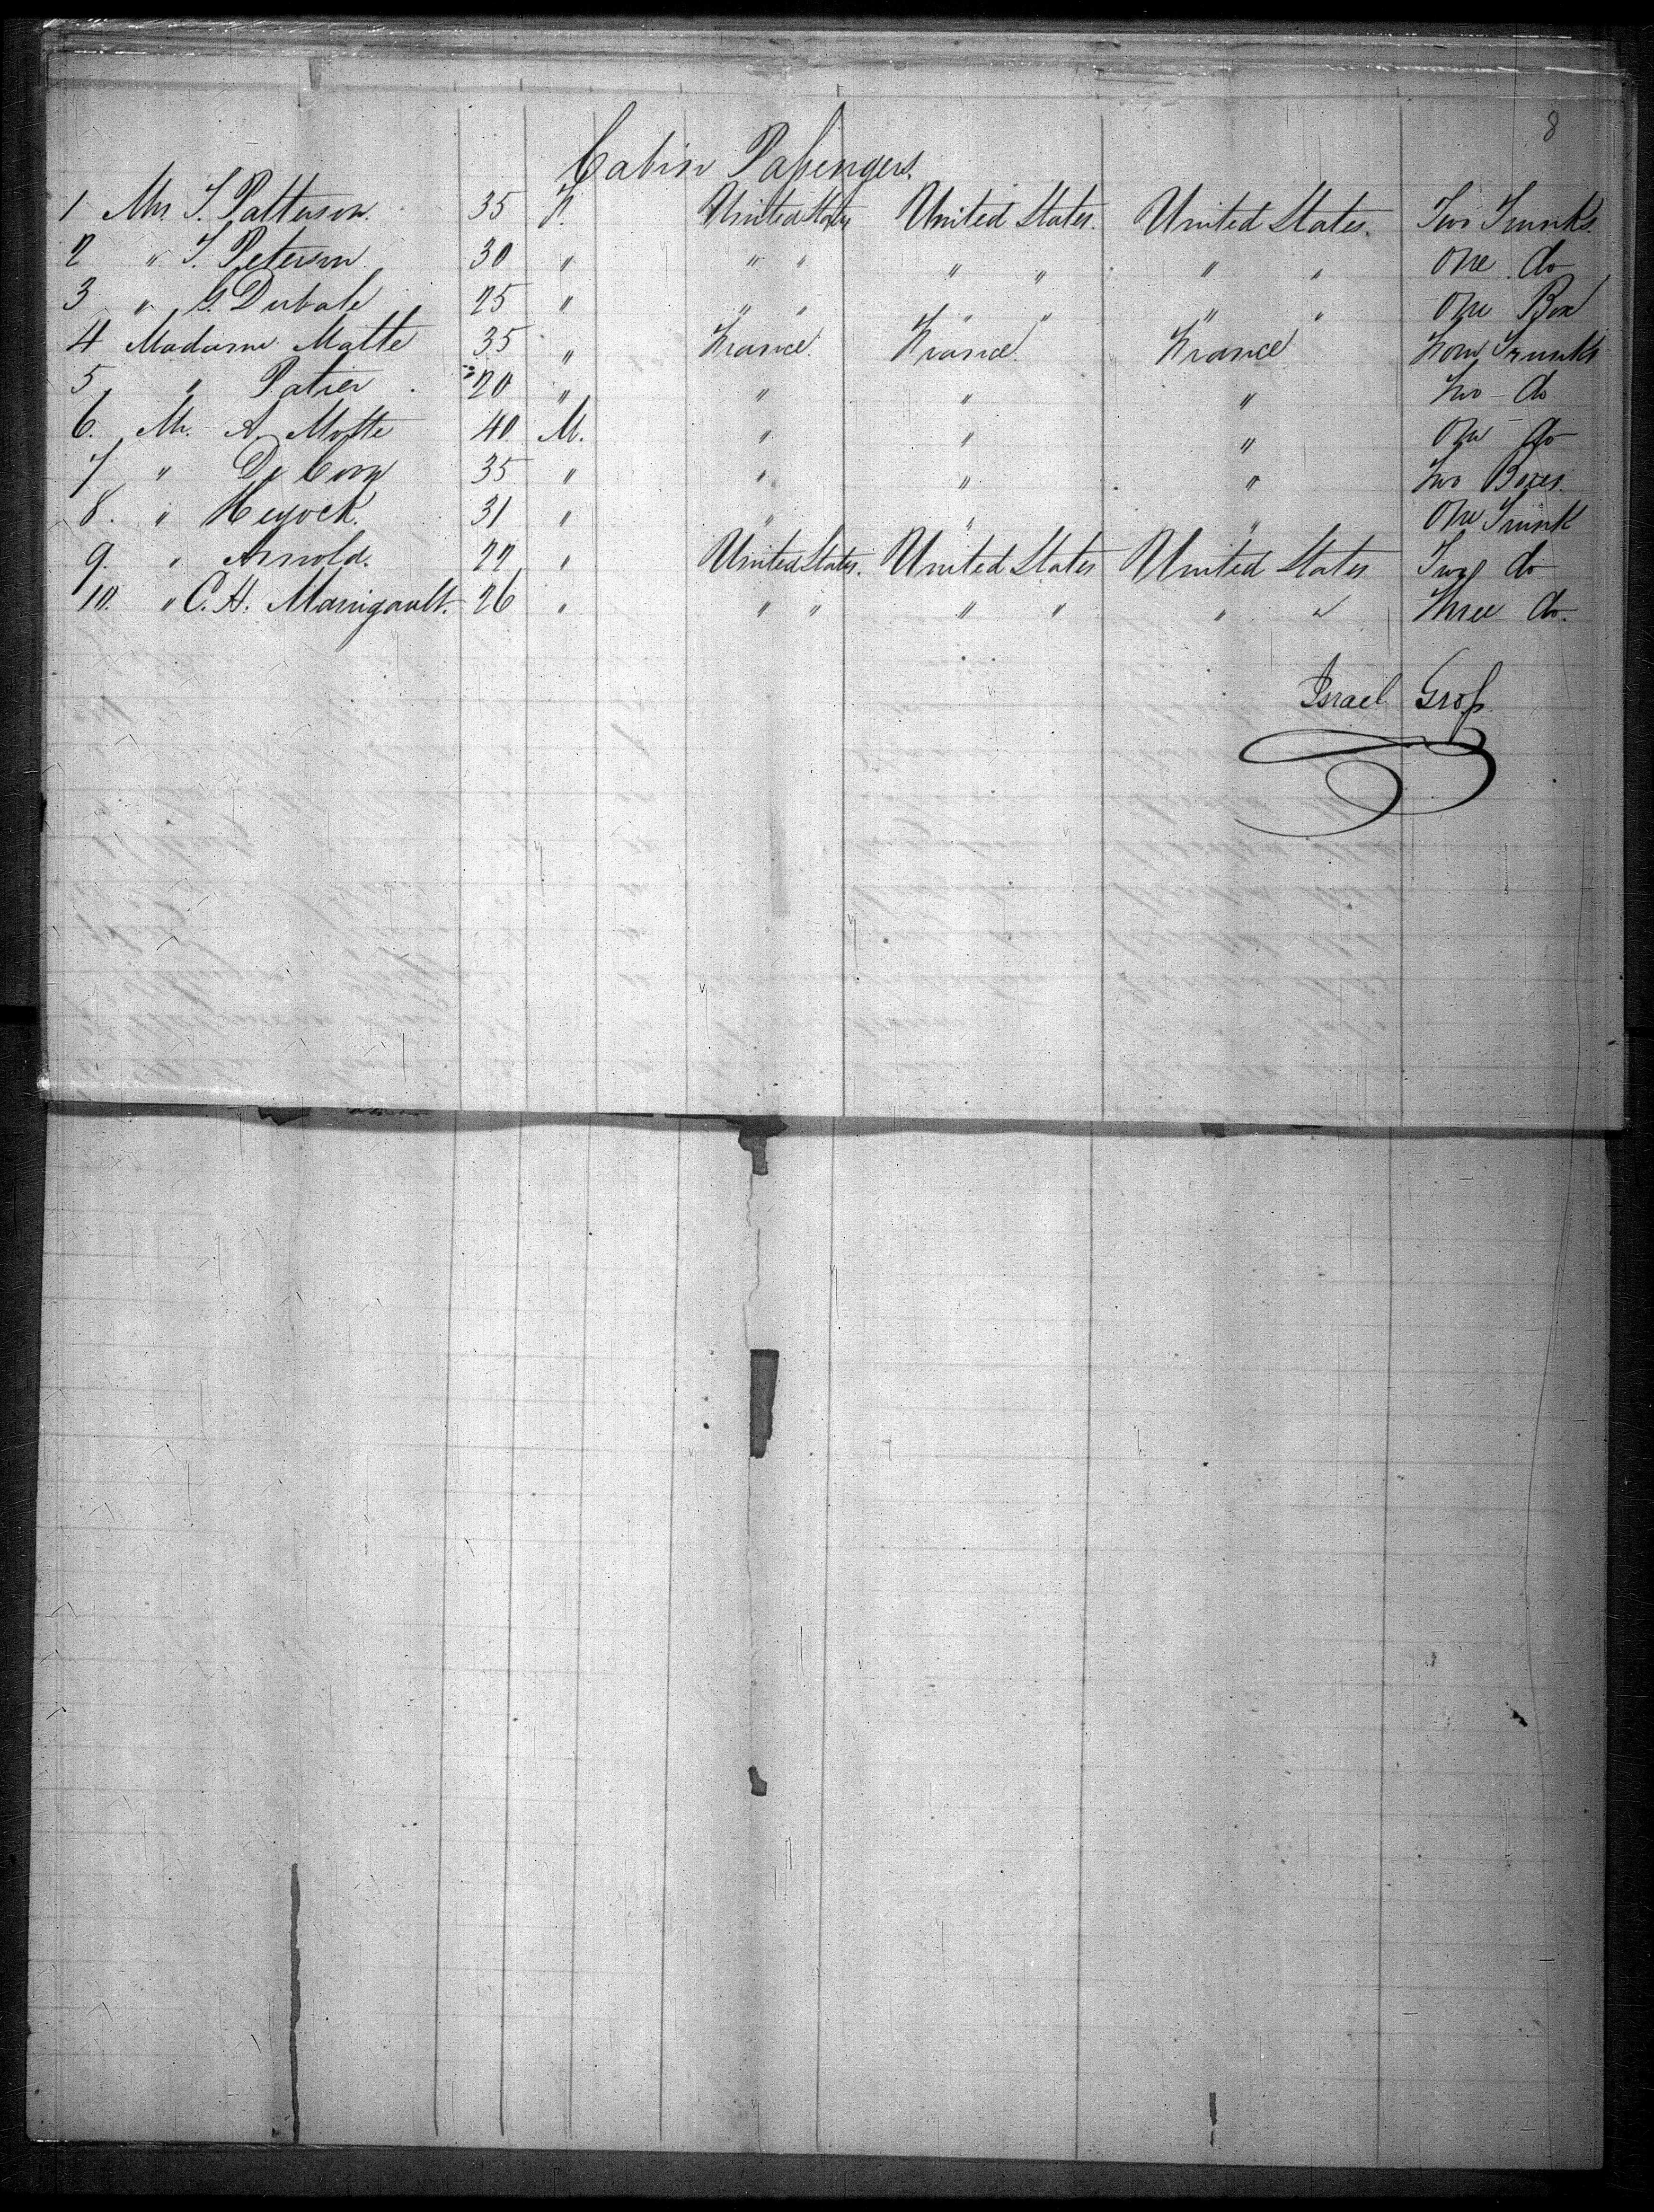 8
Cabin Passengers.
1 Mrs J. Patterson. 35 F. United States United States. United States. Two Trunks.
2 " J. Peterson 30 " " " " " " " One do
3 " G. Dubale 25 " " " " " " " One Box
4 Madame Matte 35 " France. France. France Four Trunks
5, " Patier 20 " " " " Two - do
6. Mr. A. Motte 40 M. " " " One - do
7 " De 35 " " " " Two Boxes.
8. " Heyock. 31 " " " " One Trunk
9. " Arnold. 22 " United States. United States United States Two do
10. " C. H. Manigault. 26 " " " " " " " Three do.
Israel Gross